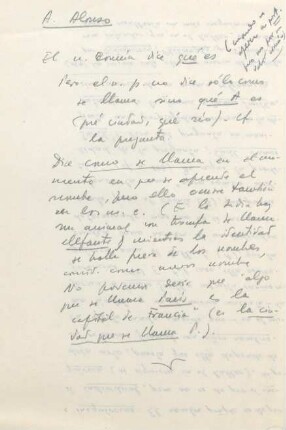 A. Alonso
El n. común dice qué es
Pero el n. p. no dice sólo como
se llama sino qué A es
(qué ciudad, qué río). Cf
la pregunta
Dice como se llama en el mo-
mento en que se aprende el
nombre, pero ello ocurre también
en los n. c. (En la India hay
un animal con trompa se llama
elefante) mientras la identidad
se halla fuera de los nombres,
como meros nombres,
No podemos decir que "algo
que se llama París es la
capital de Francia" (es la ciu-
dad que se llama P.).